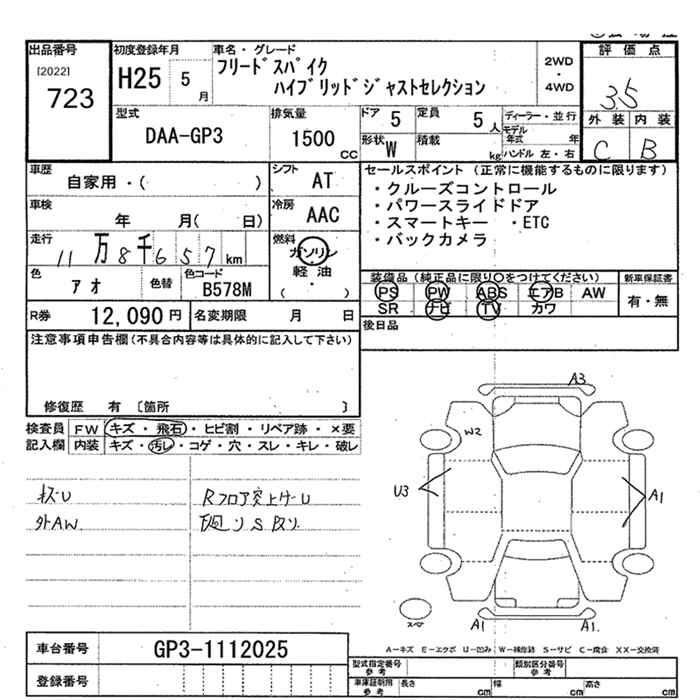 出品番号
[2022]
723
初度登録年月
H25 5 月
車名・グレード
フリードスパイク
ハイブリッドジャストセレクション
2WD
・
4WD
評価点
3.5
外装 内装
C B
型式
DAA-GP3
排気量
1500 CC
ドア 5
定員 5 人
形状 W
積載 kg
ディーラー・並行
モデル年式 年
ハンドル 左・右
車歴
自家用・( )
シフト AT
車検
年 月( 日)
冷房 AAC
走行
11万8千657 km
燃料
ガソリン
・
軽油
( )
色 アオ
色替
色コード
B578M
セールスポイント (正常に機能するものに限ります)
・クルーズコントロール
・パワースライドドア
・スマートキー ・ETC
・バックカメラ
装備品 (純正品に限り〇をつけてください)
PS PW ABS エアB AW
SR ナビ TV カワ
新車保証書
有・無
R券 12,090 円
名変期限 月 日
後日品
注意事項申告欄(不具合内容等は具体的に記入して下さい)
修復歴 有 〔箇所 〕
検査員 FW キズ・飛石・ヒビ割・リペア跡・×要
記入欄 内装 キズ・汚レ・コゲ・穴・スレ・キレ・破レ
キズU
外AW
Rフロア突上ゲU
廻リSメリ
A3
W2
U3
A1
A1
A1
A-キズ E-エクボ U-凹み W-補修跡 S-サビ C-腐食 XX-交換済
車台番号 GP3-1112025
登録番号
型式指定番号
参考
類別区分番号
参考
車庫証明用
参考
長さ cm
幅 cm
高さ cm